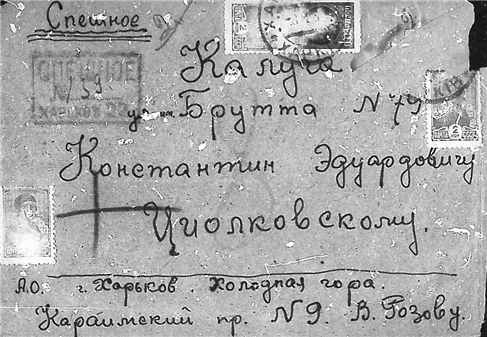 Спешное
СПЕШНОЕ
N 59
ХАРКОВ 22
Калуга
ул. им. Брутта N 79
Константин Эдуардовичу
Циолковскому.
А.О. г. Харьков. Холодная гора.
Караимский пр. N 9. В. Розову.